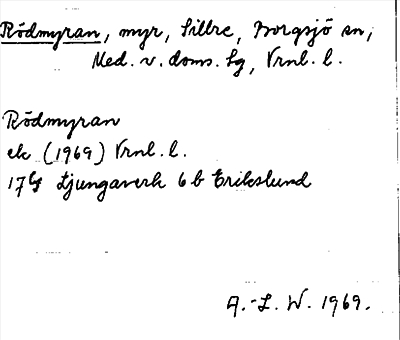 Rödmyran, myr, Sillre, Borgsjö sn,
Med. v. doms. lg, Vrnl. l.
Rödmyran
ek (1969) Vrnl. l.
17 Ljungaverk 6 b Erikslund
A.-L. W. 1969.